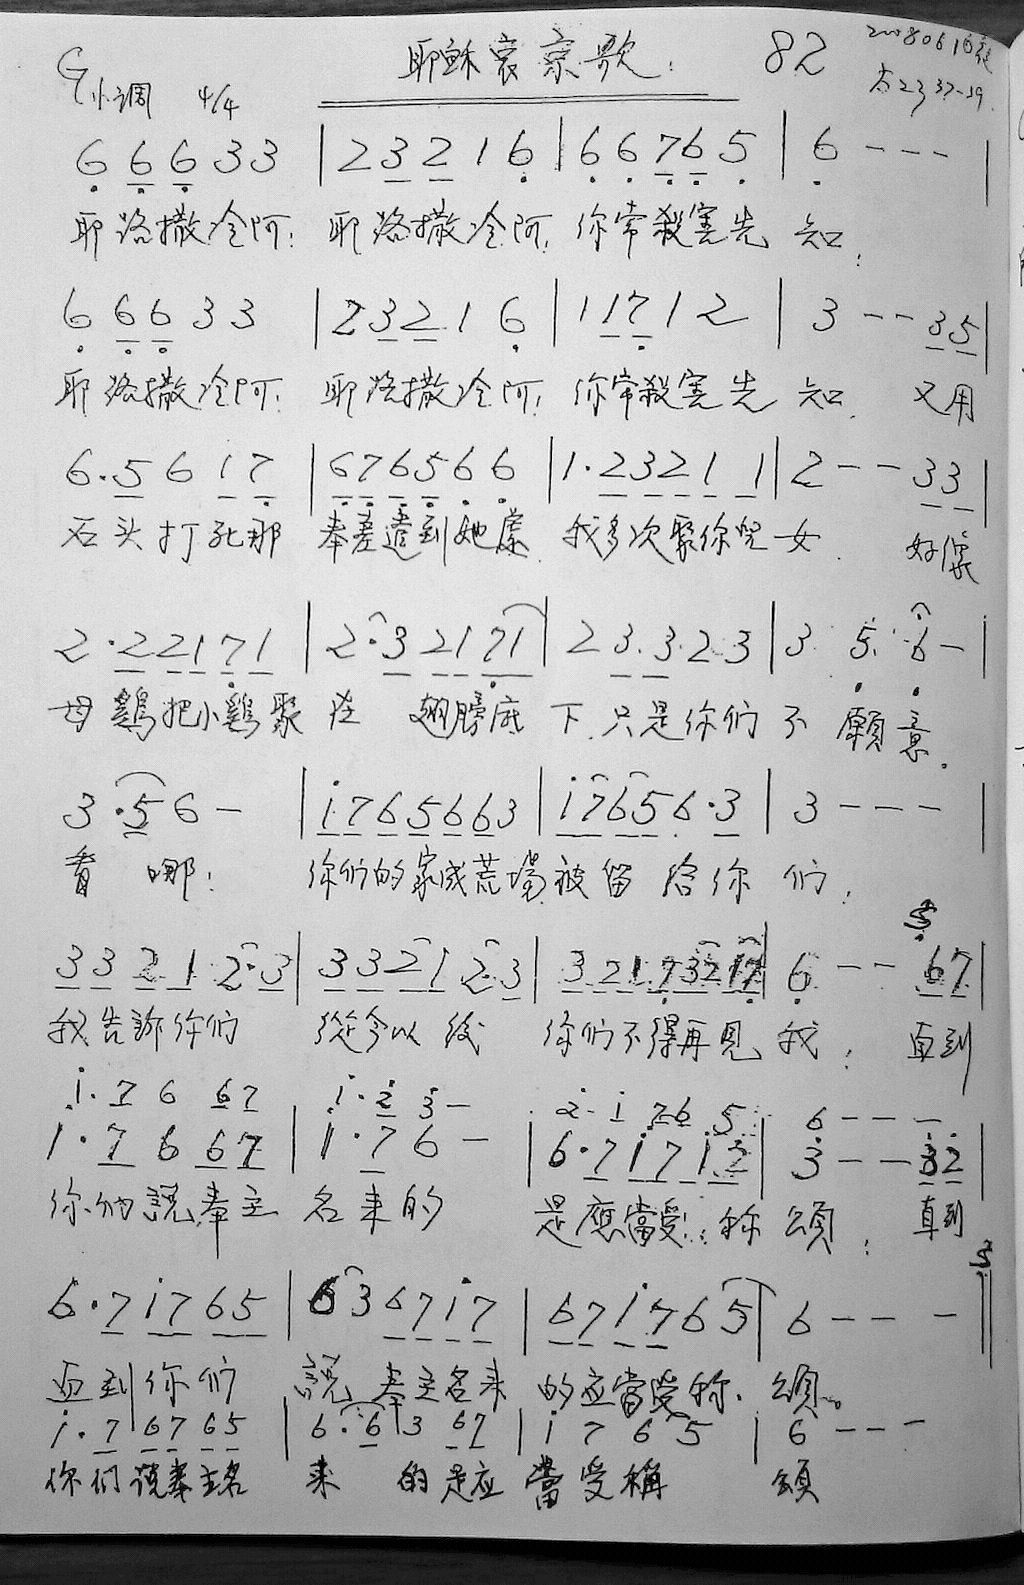 耶穌哀京歌: 82 20080616
G小调 4/4 太23 37-39
6 6 6 3 3 | 2 3 2 1 6 | 6 6 7 6 5 | 6 - - - |
耶路撒冷阿: 耶路撒冷阿, 你常殺害先知,
6 6 6 3 3 | 2 3 2 . 1 6 | 1 1 7 1 2 | 3 - - 3 5 |
耶路撒冷阿: 耶路撒冷阿, 你常殺害先知. 又用
6 . 5 6 1 7 | 6 7 6 5 6 6 | 1 . 2 3 2 1 1 | 2 - - 3 3 |
石头打死那 奉差遣到她 我多次聚你兒女. 好像
2 . 2 2 1 7 1 | 2 . 3 2 1 7 1 | 2 3 . 3 . 2 3 | 3 . 5 . 6 - |
母鷄把小鷄聚在 翅膀底下. 只是你们不願意.
3 . 5 6 - | i 7 6 5 6 6 3 | i 7 6 5 6 . 3 | 3 - - - |
看哪: 你们的家成荒場被留给你们,
3 3 2 1 2 . 3 | 3 3 2 1 2 . 3 | 3 2 1 7 3 2 1 7 | 6 - - 6 7 |
我告訴你们 從今以後 你们不得再見我: 直到
i . 7 6 6 7 i . 2 3 - 2 . i 7 6 5 6 - - -
1 . 7 6 6 7 | 1 . 7 6 - | 6 . 7 i 7 i 2 | 3 - - 3 2 |
你们說奉主名来的 是應當受: 称頌: 直到
6 . 7 i 7 6 5 | 6 3 6 7 i 7 | 6 7 i 7 6 5 | 6 - - - |
直到你们 說奉主名来的应當受称. 頌。
i . 7 6 7 6 5 | 6 . 6 3 6 7 | i 7 6 5 | 6 - - -
你们说奉主名 来的是应當受稱 頌